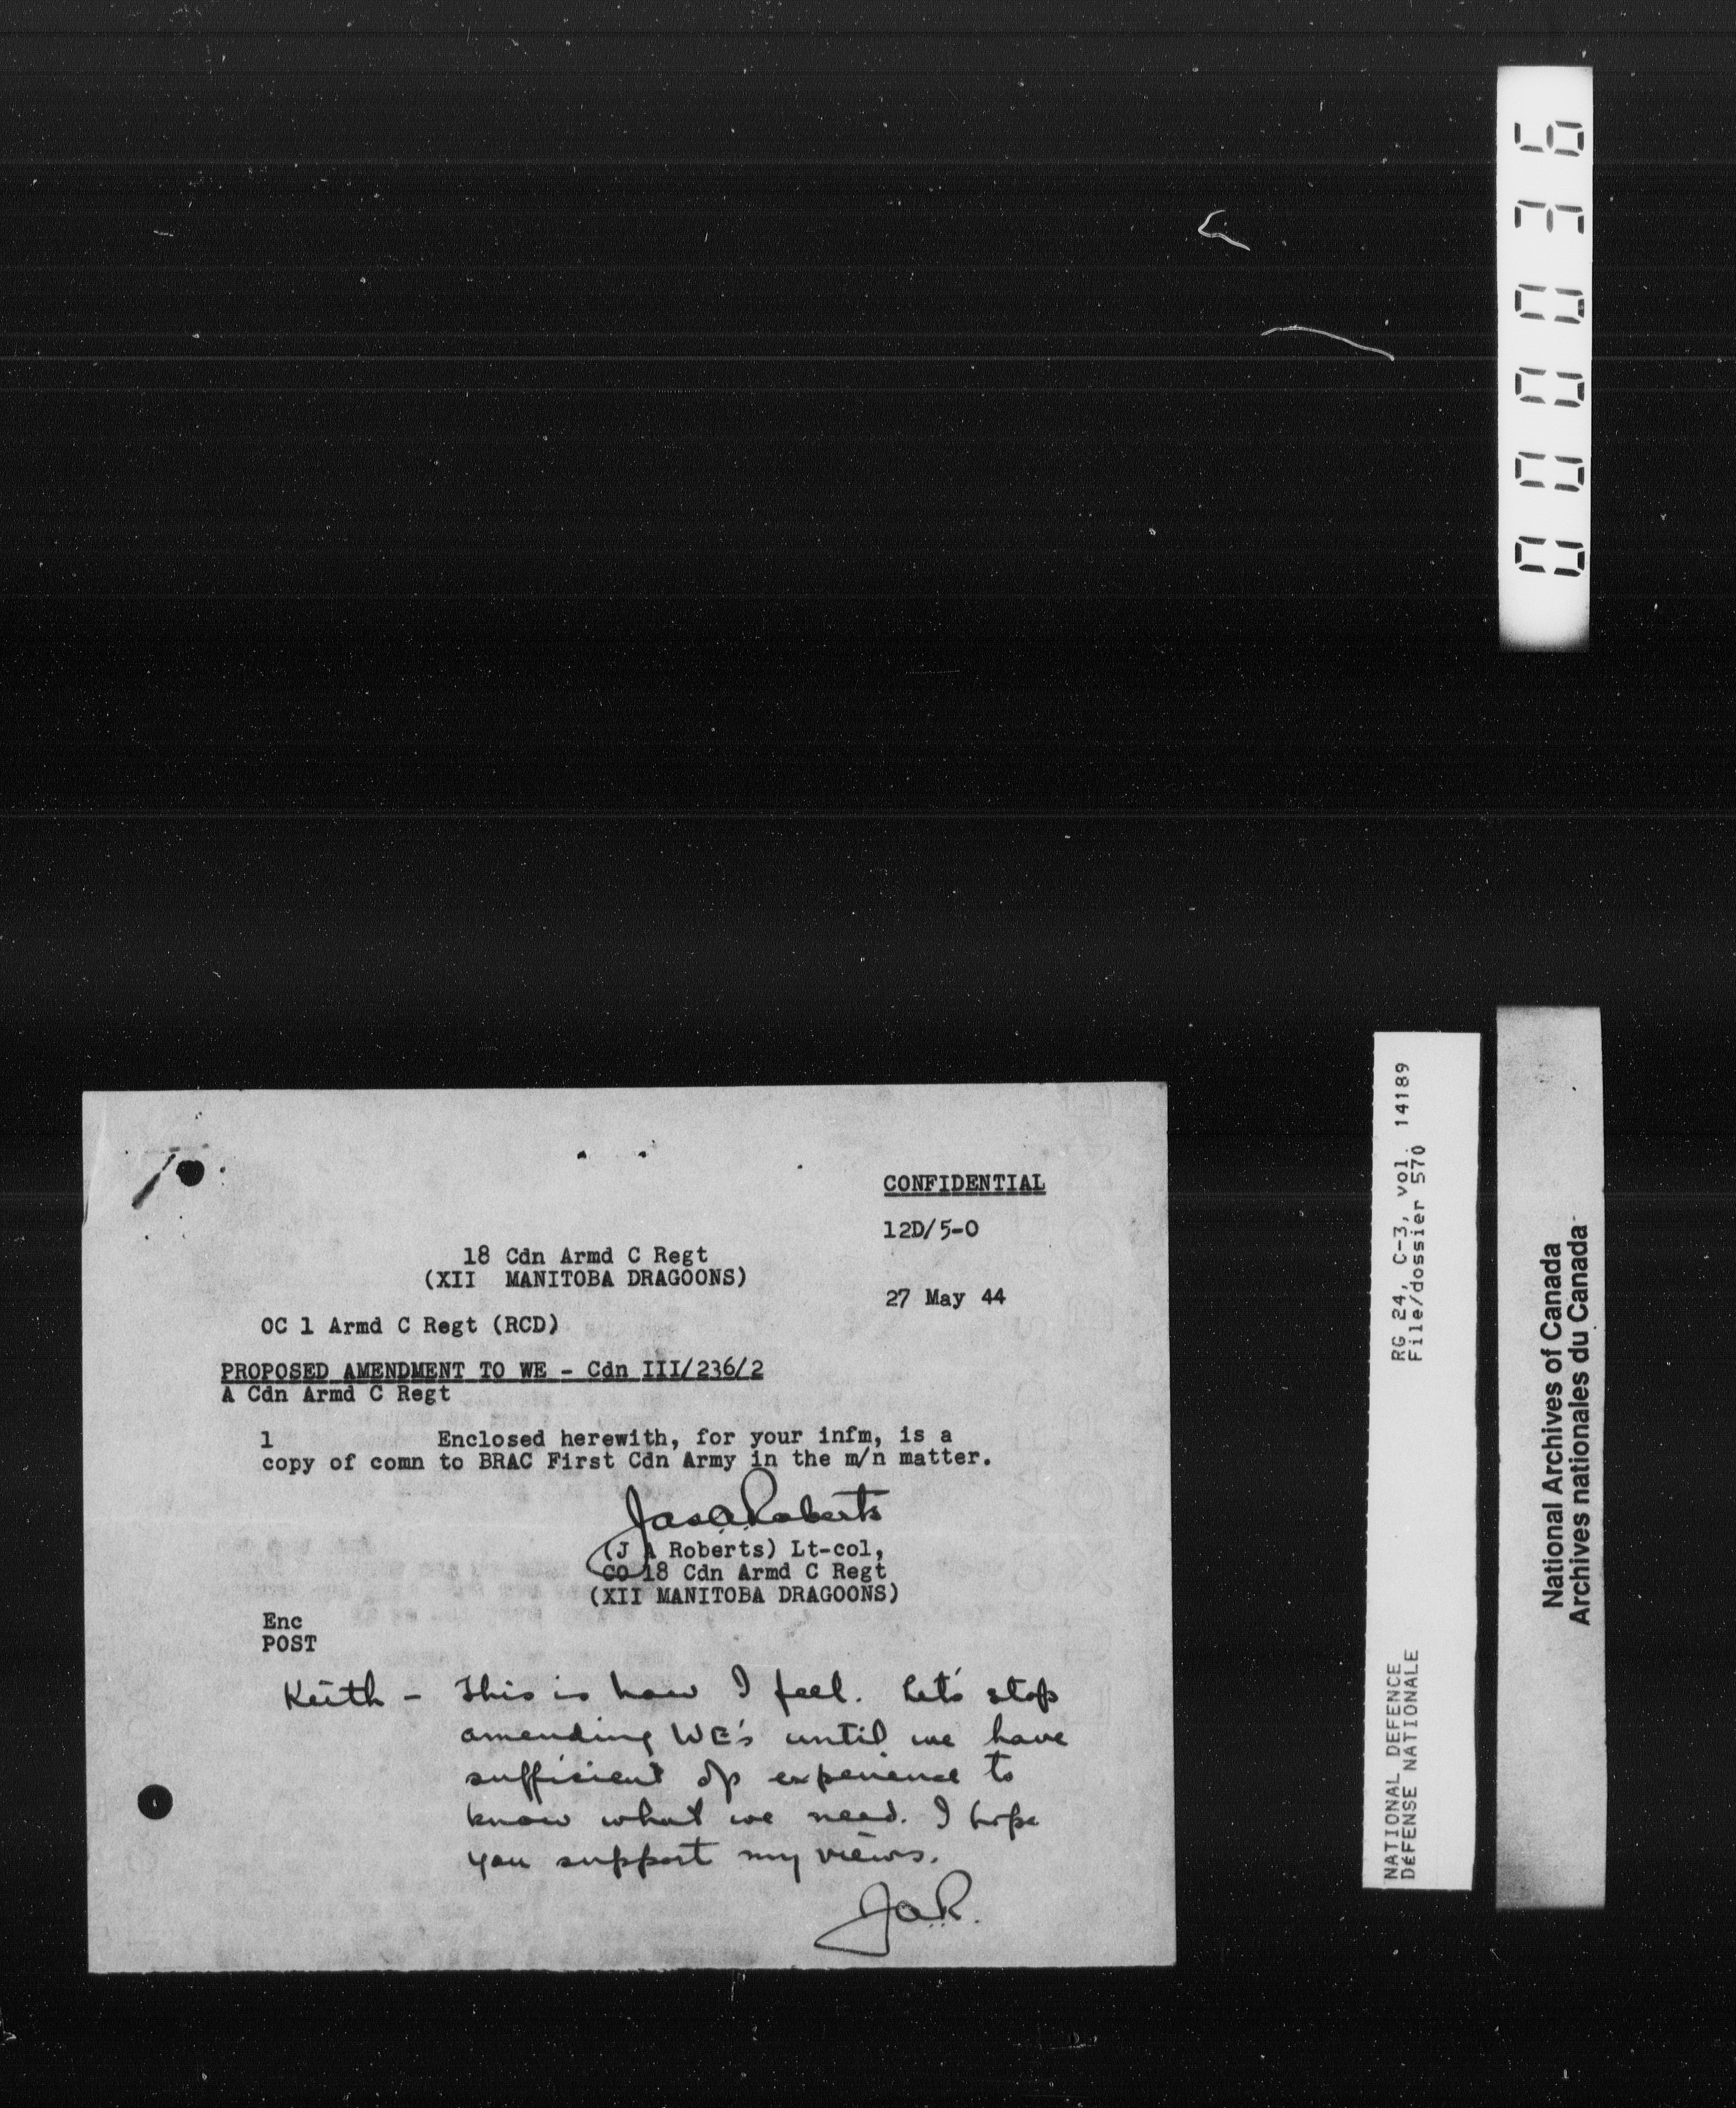 000036
CONFIDENTIAL
12D/5-0
18 Cdn Armd C Regt
(XII MANITOBA DRAGOONS)
27 May 44
OC 1 Armd C Regt (RCD)
PROPOSED AMENDMENT TO WE - Cdn III/236/2
A Cdn Armd C Regt
1 Enclosed herewith, for your infm, is a
copy of comn to BRAC First Cdn Army in the m/n matter.
Jas A Roberts
(J A Roberts) Lt-col,
CO 18 Cdn Armd C Regt
(XII MANITOBA DRAGOONS)
Enc
POST
Keith - This is how I feel. Let's stop
amending WE's until we have
sufficient op experience to
know what we need. I hope
you support my views.
JAR.
NATIONAL DEFENCE RG 24, C-3, vol. 14189
DÉFENSE NATIONALE File/dossier 570
National Archives of Canada
Archives nationales du Canada